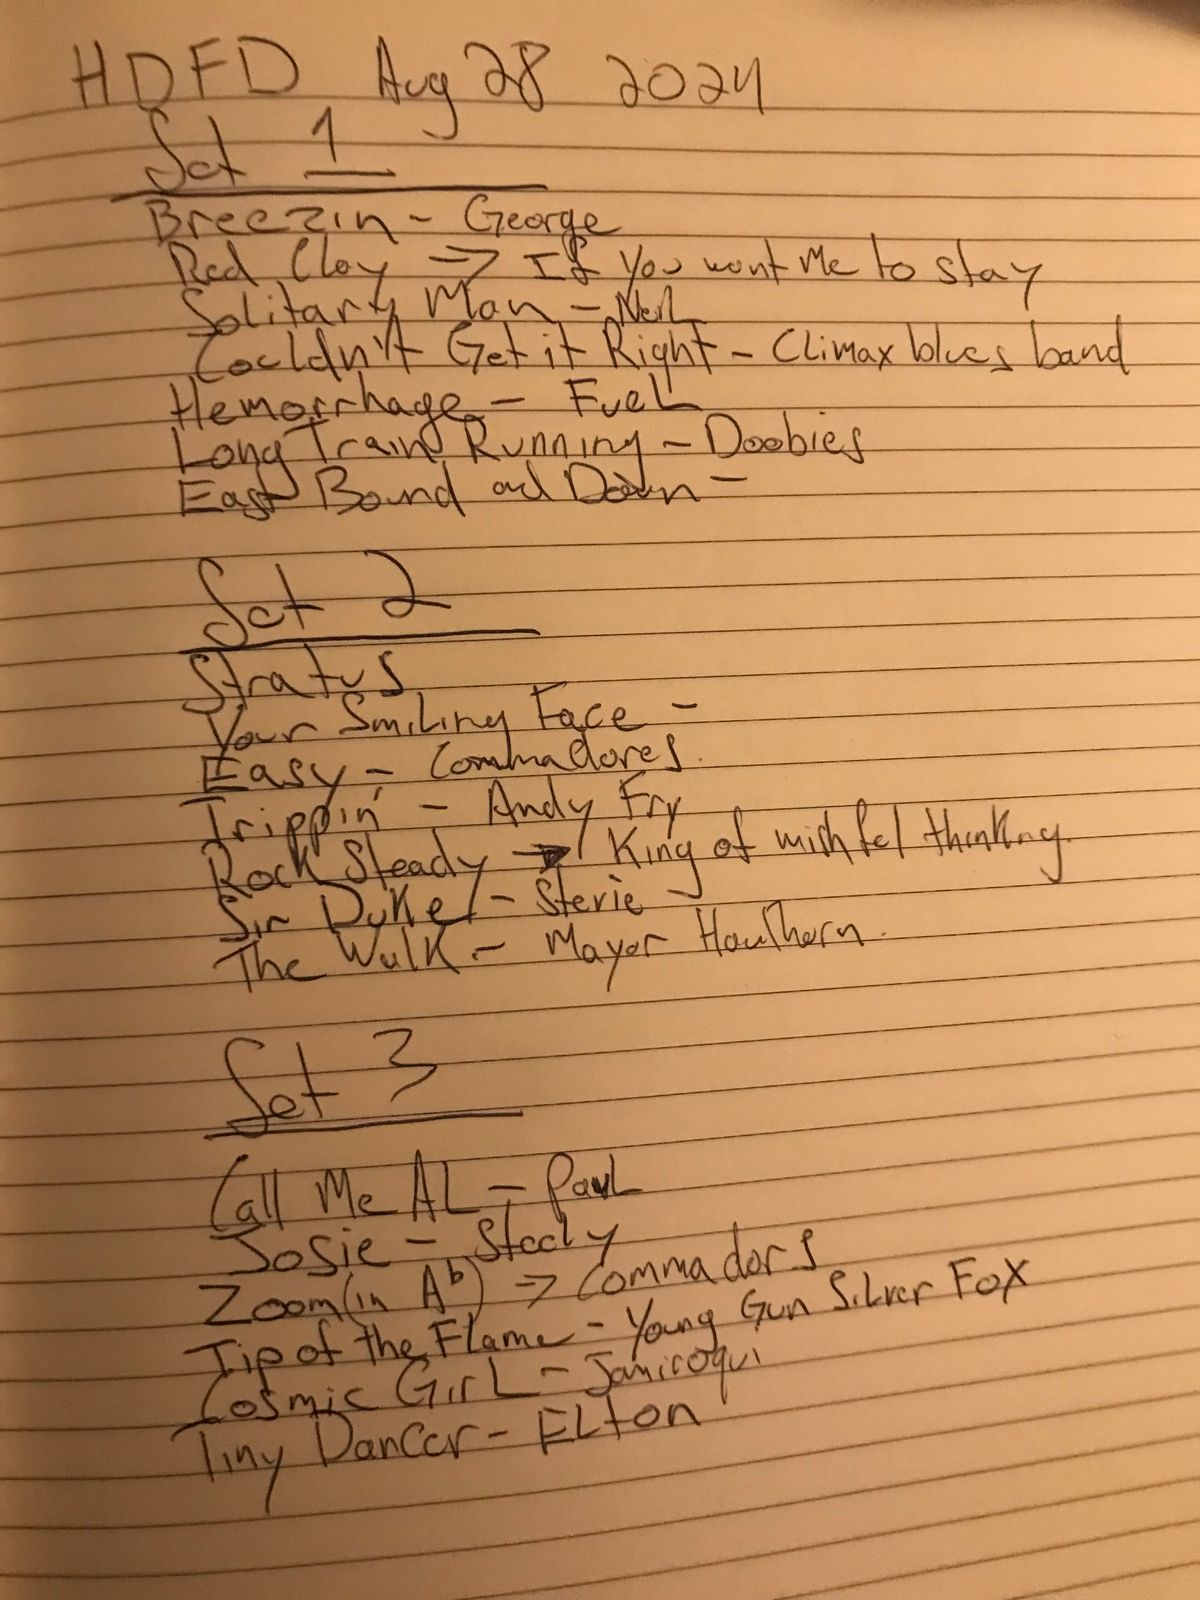 HDFD Aug 28 2024
Set 1
Breezin - George
Red Clay => If You want Me to stay
Solitary Man - Neil
Couldn't Get it Right - Climax blues band
Hemorrhage - Fuel
Long Train Running - Doobies
East Bound and Down -
Set 2
Stratus
Your Smiling Face -
Easy - Commadores.
Trippin' - Andy Fry
Rock Steady -> King of wishful thinking.
Sir Duke - Stevie
The Walk - Mayer Hawthorn.
Set 3
Call Me AL - Paul
Josie - Steely
Zoom (in Ab) => Commadors
Tip of the Flame - Young Gun Silver Fox
Cosmic Girl - Jamiroqui
Tiny Dancer - Elton